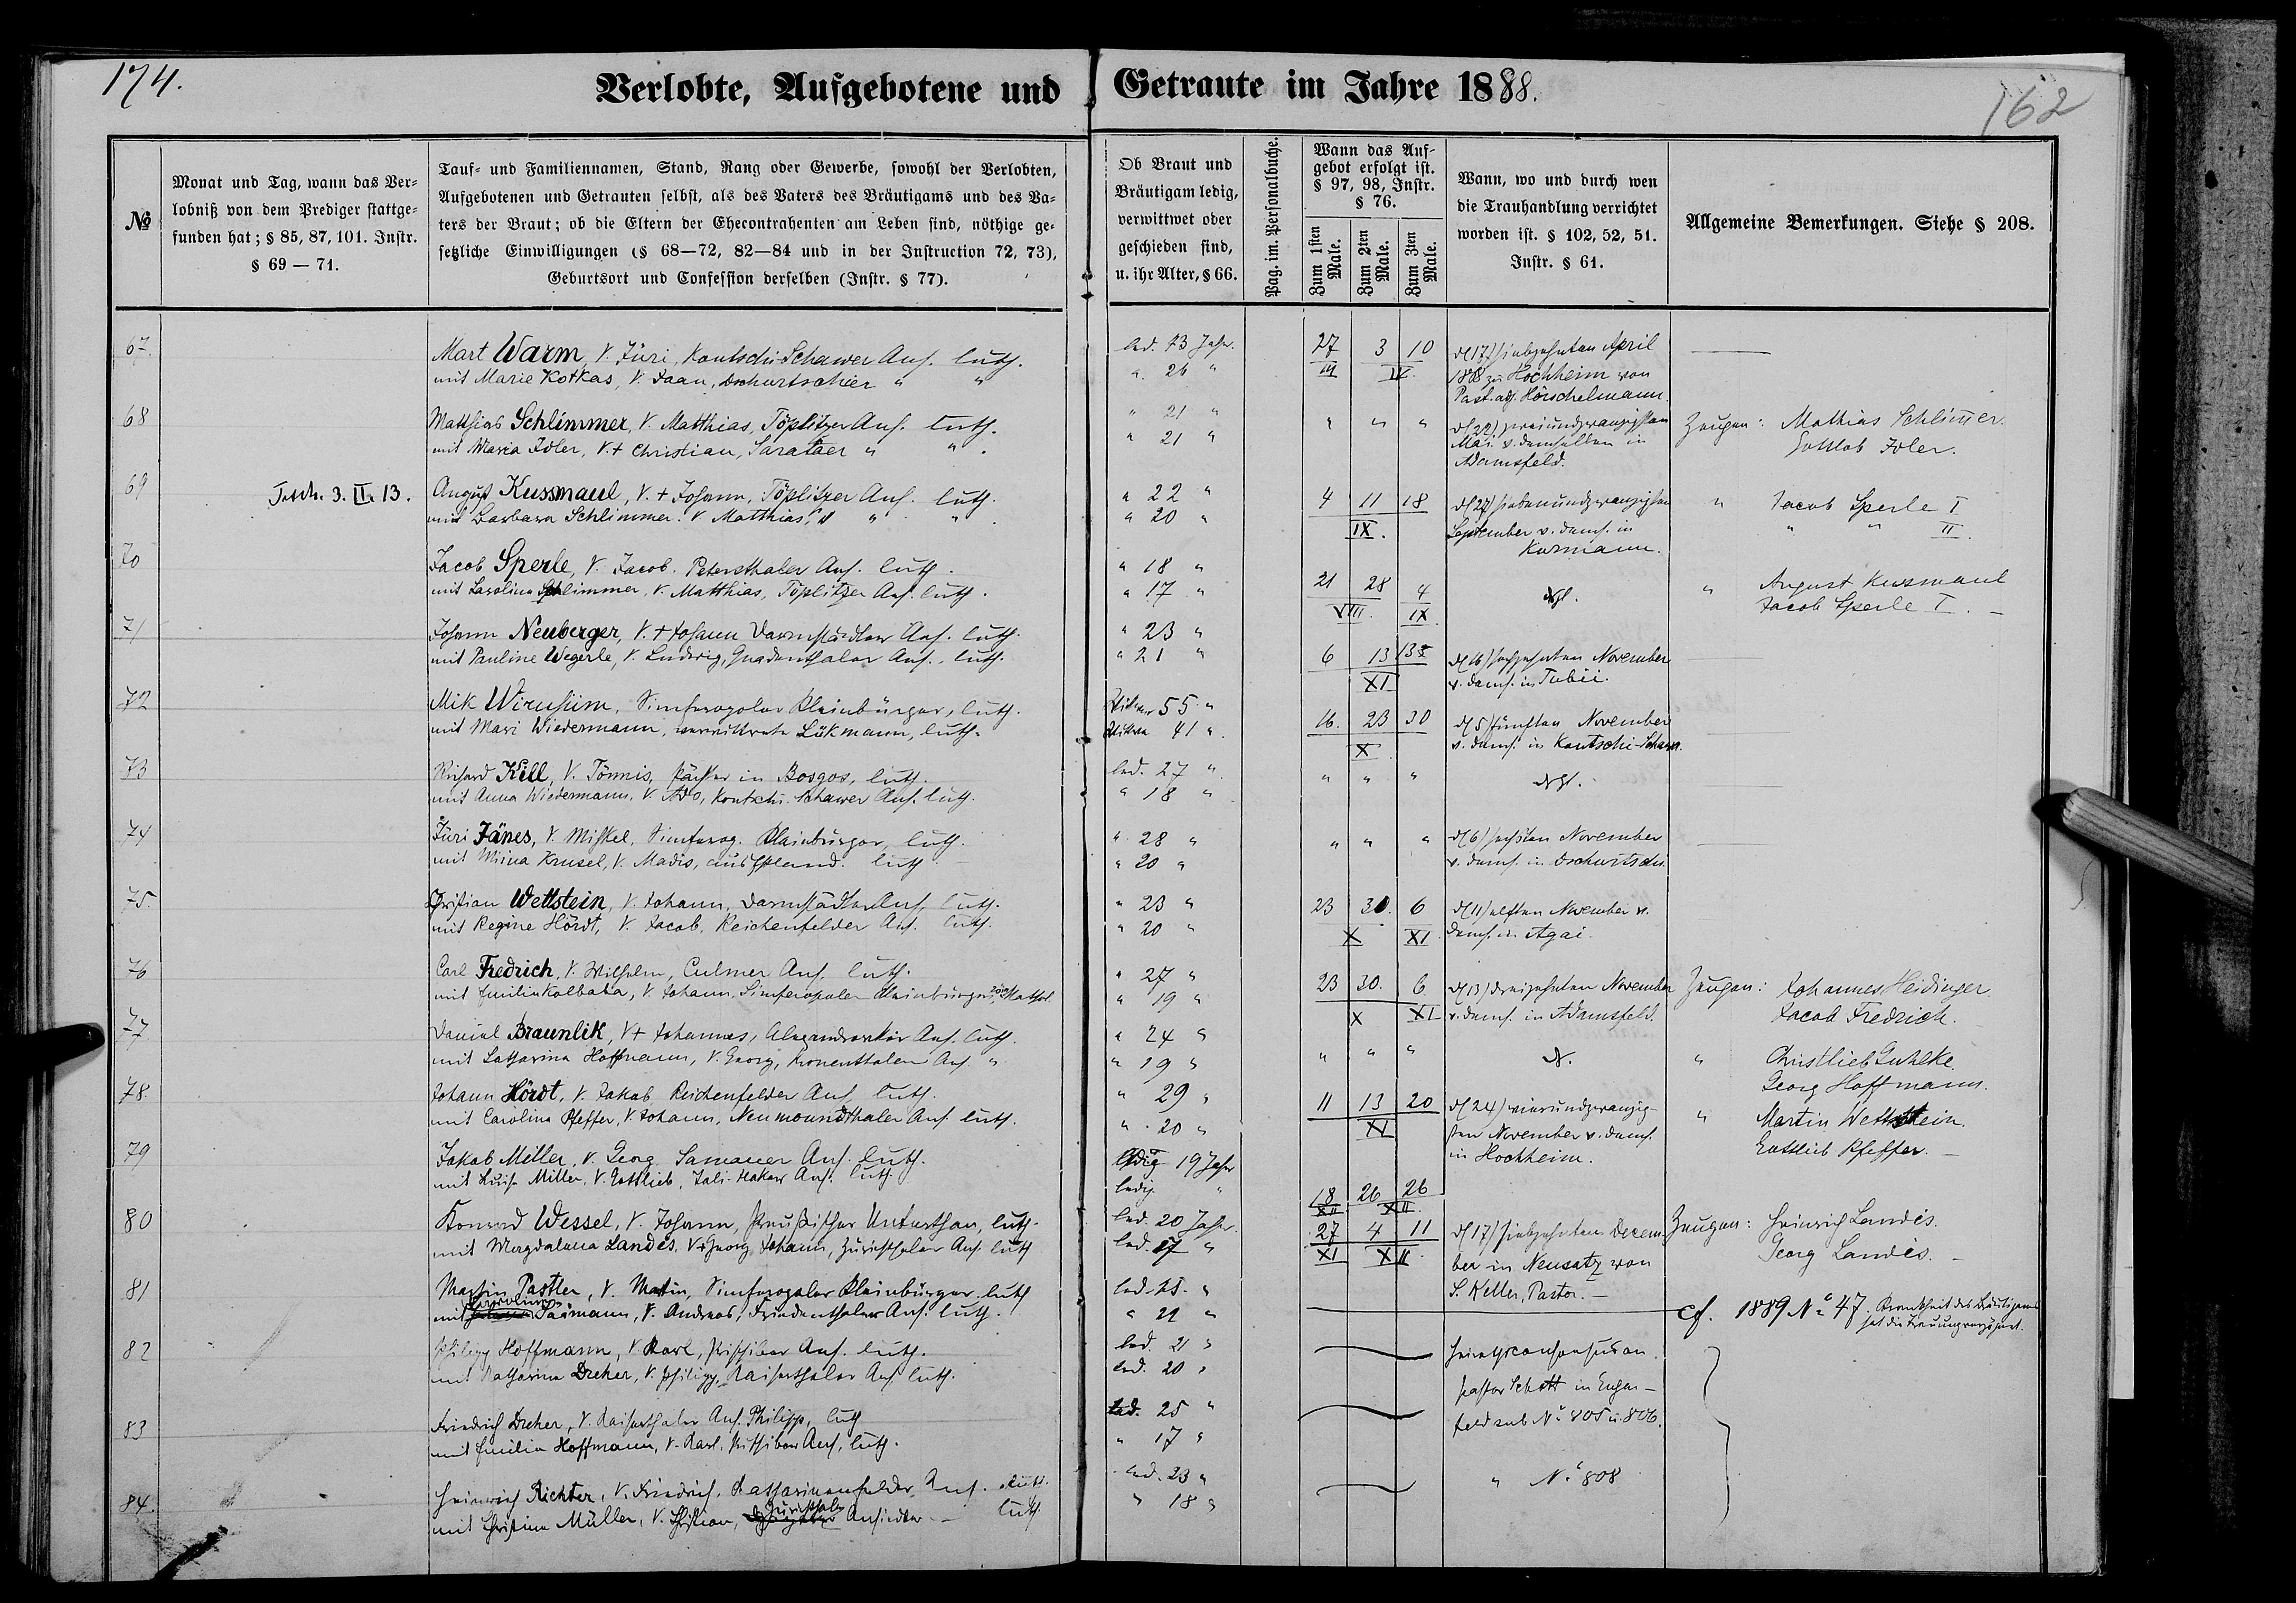 174.
162
Verlobte, Aufgebotene und Getraute im Jahre 1888.
№
Monat und Tag, wann das Ver-
lobniß von dem Prediger stattge-
funden hat; § 85, 87, 101. Instr.
§ 69 — 71.
Tauf- und Familiennamen, Stand, Rang oder Gewerbe, sowohl der Verlobten,
Aufgebotenen und Getrauten selbst, als des Vaters des Bräutigams und des Va-
ters der Braut; ob die Eltern der Ehecontrahenten am Leben sind, nöthige ge-
setzliche Einwilligungen (§ 68—72, 82—84 und in der Instruction 72, 73),
Geburtsort und Confession derselben (Instr. § 77).
Ob Braut und
Bräutigam ledig,
verwittwet oder
geschieden sind,
u. ihr Alter, § 66.
Pag. im. Personalbuche.
Wann das Auf-
gebot erfolgt ist.
§ 97, 98, Instr.
§ 76.
Zum 1sten Male.
Zum 2ten Male.
Zum 3ten Male.
Wann, wo und durch wen
die Trauhandlung verrichtet
worden ist. § 102, 52, 51.
Instr. § 61.
Allgemeine Bemerkungen. Siehe § 208.
67 Mart Warm, V. Jüri, Kontschi-Schawer Ans. luth. led. 23 Jahr. 27 3 10 d(17) siebzehnten April
mit Marie Kotkas, V. Jaan, Dschurtschier " " " 26 " III IV. 1888 zu Hochheim von
Past. adj. Hörschelmann.
68 Matthias Schlimmer, V. Matthias, Töplitzer Ans. luth. " 21 " " " " d(22) zweiundzwanzigsten Zeugen: Mathias Schlimer.
mit Maria Idler, V.+ Christian, Sarataer " " " 21 " Mai v. demselben in Gottlob Idler.
Adamsfeld.
69 3. II. 13. August Kussmaul, V. + Johann, Töplitzer Ans. luth. " 22 " 4 11 18 d(27) siebenundzwanzigsten " Jacob Sperle I
mit Barbara Schlimmer. V. Matthias, " " " 20 " IX. September v. dems. in " " II.
Kurmann.
70 Jacob Sperle, V. Jacob. Petersthaler Ans. luth. " 18 " 21 28 4 dgl. " August Kussmaul
mit Carolina Schlimmer, V. Matthias, Töplitzer Ans. luth. " 17 " VIII. IX. Jacob Sperle I.
71 Johann Neuberger, V. + Johann Darmstädter Ans. luth. " 23 " 6 13 d(16) sechzehnten November
mit Pauline Wegerle, V. Ludwig, Gnadenthaler Ans. luth. " 21 " XI v. dems. in Tubii.
72 Mik Wirusiim, Simferopoler Kleinbürger, luth. Wittwer 55 " 16. 23 30 d(5) fünften November
mit Mari Wiedermann, verwittwete Lükmann, luth. Wittwe 41 " X v. dems. in Kontschi-Schawa.
73 Richard Kill, V. Tönnis, Pächter in Bosgos, luth. led. 27 " " " " dgl.
mit Anna Wiedermann, V. Ado, Kontschi-Schawer Ans. luth. " 18 "
74 Jüri Jänes, V. Mihkel, Simferop. Kleinbürger, luth. " 28 " " " " d(6) sechsten November
mit Miina Krusel, V. Madis, aus Estland. luth. " 20 " v. dems. in Dschurtschi.
75 Christian Wettstein, V. Johann, Darmstädter Ans. luth. " 23 " 23 30. 6 d(11) elften November v.
mit Regine Hördt, V. Jacob, Reichenfelder Ans. luth. " 20 " X XI. dems. in Agai.
76 Carl Fredrich, V. Wilhelm, Culmer Ans. luth. " 27 " 23 30. 6 d(13) dreizehnten November Zeugen: Johannes Heidinger
mit Emilie Kolbaba, V. Johann, Simferopoler Kleinbürger, röm. Kathol. " 19 " X XI v. dems. in Adamsfeld. Jacob Fredrich.
77 Daniel Braunlik, V+ Johannes, Alexandrowker Ans. luth. " 24 " " " " d. " Christlieb Guhlke.
mit Catharina Hoffmann, V. Georg, Kronenthaler Ans. " " 19 " Georg Hoffmann.
78. Johann Hördt, V. Jakob, Reichenfelder Ans. luth. " 29 " 11 13 20 d(24) vierundzwanzig- " Martin Wettstein.
mit Carolina Pfeffer, V. Johann, Neumonndthaler Ans. luth. " 20 " XI sten November v. dems. Gottlieb Pfeffer.
in Hochheim.
79 Jakob Miller, V. Georg Samauer Ans. luth. ledig 19 Jahr
mit Luise Miller, V. Gottlieb, Ans. luth. ledig " 18 26 26
XII XII.
80 Konrad Wessel, V. Johann, Preußischer Unterthan, luth. led. 20 Jahr. 27 4 11 d(17) siebzehnten Decem- Zeugen: Heinrich Landes.
mit Magdalena Landes, V+ Georg Johann, Zürichthaler Ans. luth. led. 17 " XI XII. ber in Neusatz von Georg Landes.
S. Keller, Pastor.
81 Martin Pastler, V. Martin, Simferopoler Kleinbürger luth. led. 25. "
mit V. Andreas, Friedenthaler Ans. luth. " 21 " cf. 1889 No 47. Krankheit des Bräutigams
hat die Trauung verzögert.
82 Philipp Hoffmann, V. Karl, Ans. luth. led. 21 "
mit Katharina Dreher, V. Philipp, Kaiserthaler Ans. luth. led. 20 " Pastor Schott in Eugen-
83 Friedrich Dreher, V. Kaiserthaler Ans. Philipp, luth. led. 25 " feld sub No 805 u. 806.
mit Emilia Hoffmann, V. Karl, Ans. luth. " 17 "
84. Heinrich Richter, V. Friedrich, Katharinenfelder Ans. luth. led. 23 " " No 808
mit Christina Müller, V. Christian, Zürichthaler Ansiedler luth. " 18 "